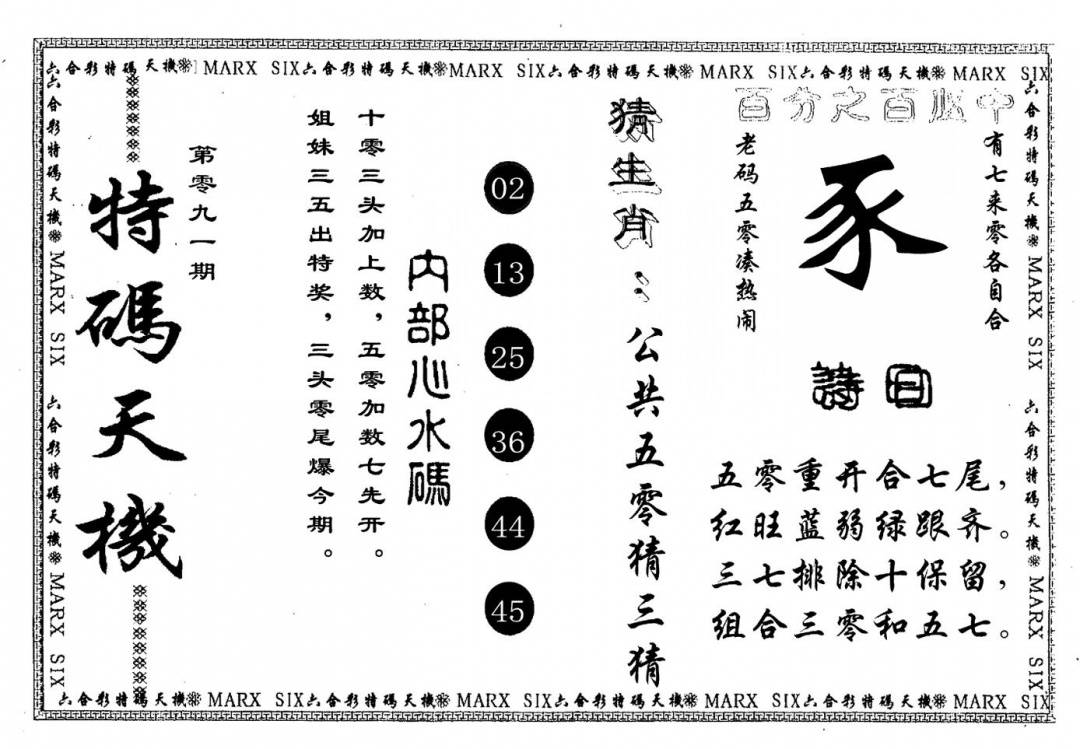 六合彩特碼天機❊ MARX SIX六合彩特碼天機❊MARX SIX六合彩特碼天機❊ MARX SIX六合彩特碼天機❊ MARX SIX
六合彩特碼天機❊ MARX SIX 六合彩特碼天機❊ MARX SIX
百分之百必中
有七来零各自合
豕
老码五零凑热闹
詩曰
五零重开合七尾，
红旺蓝弱绿跟齐。
三七排除十保留，
组合三零和五七。
猜生肖：公共五零猜三猜
02
13
25
36
44
45
内部心水碼
十零三头加上数，五零加数七先开。
姐妹三五出特奖，三头零尾爆今期。
第零九一期
特碼天機
六合彩特碼天機❊ MARX SIX 六合彩特碼天機❊ MARX SIX
六合彩特碼天機❊ MARX SIX六合彩特碼天機❊ MARX SIX六合彩特碼天機❊ MARX SIX六合彩特碼天機❊ MARX SIX